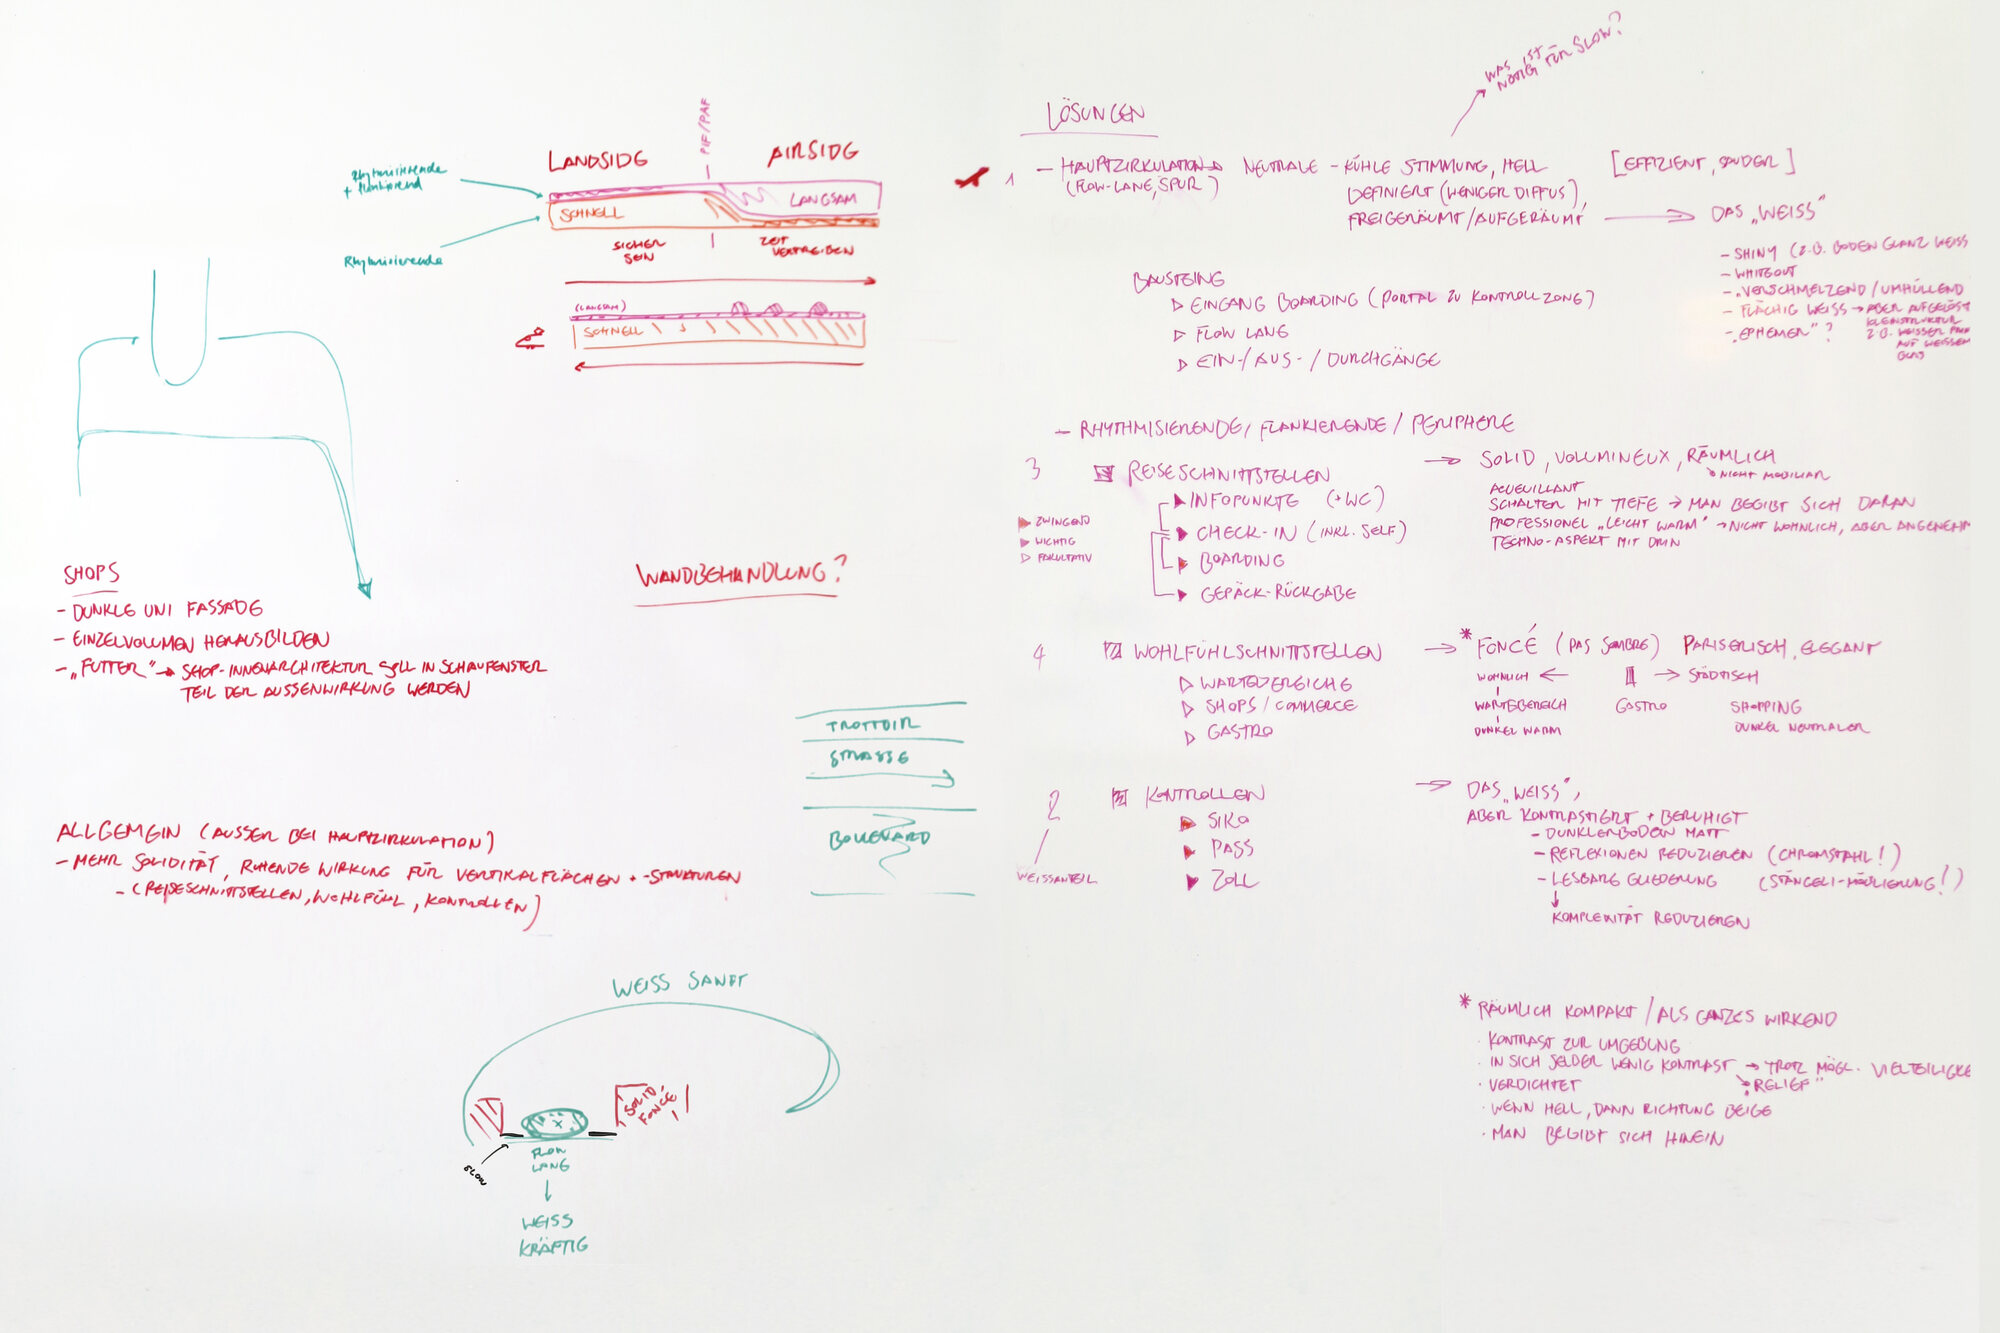 Rhythmisierende
+ flankierend
Rhythmisierende
LANDSIDE
PIF/PAF
AIRSIDE
SCHNELL
LANGSAM
SICHER
SEIN
ZEIT
VERTREIBEN
(LANGSAM)
SCHNELL
SHOPS
- DUNKLE UNI FASSADE
- EINZELVOLUMEN HERAUSBILDEN
- „FUTTER" → SHOP-INNENARCHITEKTUR SOLL IN SCHAUFENSTER
TEIL DER AUSSENWIRKUNG WERDEN
WANDBEHANDLUNG?
TROTTOIR
STRASSE
BOULEVARD
ALLGEMEIN (AUSSER BEI HAUPTZIRKULATION)
- MEHR SOLIDITÄT, RUHENDE WIRKUNG FÜR VERTIKALFLÄCHEN + -STRUKTUREN
- (REISESCHNITTSTELLEN, WOHLFÜHL, KONTROLLEN)
WEISS SANFT
SOLID
FONCÉ
!
x
SLOW
FLOW
LANE
WEISS
KRÄFTIG
WAS IST
NÖTIG FÜR SLOW?
LÖSUNGEN
1 - HAUPTZIRKULATION → NEUTRALE - KÜHLE STIMMUNG, HELL [EFFIZIENT, SAUBER]
(FLOW-LANE, SPUR)
DEFINIERT (WENIGER DIFFUS),
FREIGERÄUMT/AUFGERÄUMT → DAS „WEISS"
- SHINY (Z.B. BODEN GLANZ WEISS
- WHITEOUT
- „VERSCHMELZEND/UMHÜLLEND
- FLÄCHIG WEISS → ABER AUFGELÖST
KLEINSTRUKTUR
Z.B. WEISSER
AUF WEISSEM
GLAS
- „EPHEMER"?
BAUSTEINE
▷ EINGANG BOARDING (PORTAL ZU KONTROLLZONE)
▷ FLOW LANE
▷ EIN-/AUS-/DURCHGÄNGE
- RHYTHMISIERENDE, FLANKIERENDE/PERIPHERE
3 REISESCHNITTSTELLEN → SOLID, VOLUMINEUX, RÄUMLICH
NICHT MOBILIAR
▶ INFOPUNKTE (+WC)
▶ CHECK-IN (INKL. SELF)
▶ BOARDING
▶ GEPÄCK-RÜCKGABE
▶ ZWINGEND
▶ WICHTIG
▷ FAKULTATIV
ACUEUILLANT
SCHALTER MIT TIEFE → MAN BEGIBT SICH DARAN
PROFESSIONEL „LEICHT WARM" → NICHT WOHNLICH, ABER ANGENEHM
TECHNO-ASPEKT MIT DRIN
4 WOHLFÜHLSCHNITTSTELLEN → * FONCÉ (PAS SOMBRE) PARISERISCH, ELEGANT
▷ WARTEBEREICHE
▷ SHOPS/COMMERCE
▷ GASTRO
WOHNLICH ← → STÄDTISCH
WARTEBEREICH GASTRO SHOPPING
DUNKEL WARM DUNKEL NEUTRALER
2 KONTROLLEN → DAS „WEISS",
WEISSANTEIL
▶ SIKO
▶ PASS
▶ ZOLL
ABER KONTRASTIERT + BERUHIGT
- DUNKLER BODEN MATT
- REFLEXIONEN REDUZIEREN (CHROMSTAHL!)
- LESBARE GLIEDERUNG (STÄNGELI-MÖBLIERUNG!)
↓
KOMPLEXITÄT REDUZIEREN
* RÄUMLICH KOMPAKT/ALS GANZES WIRKEND
· KONTRAST ZUR UMGEBUNG
· IN SICH SELBER WENIG KONTRAST → TROTZ MÖGL. VIELTEILIGKE
· VERDICHTET → „RELIEF"
· WENN HELL, DANN RICHTUNG BEIGE
· MAN BEGIBT SICH HINEIN